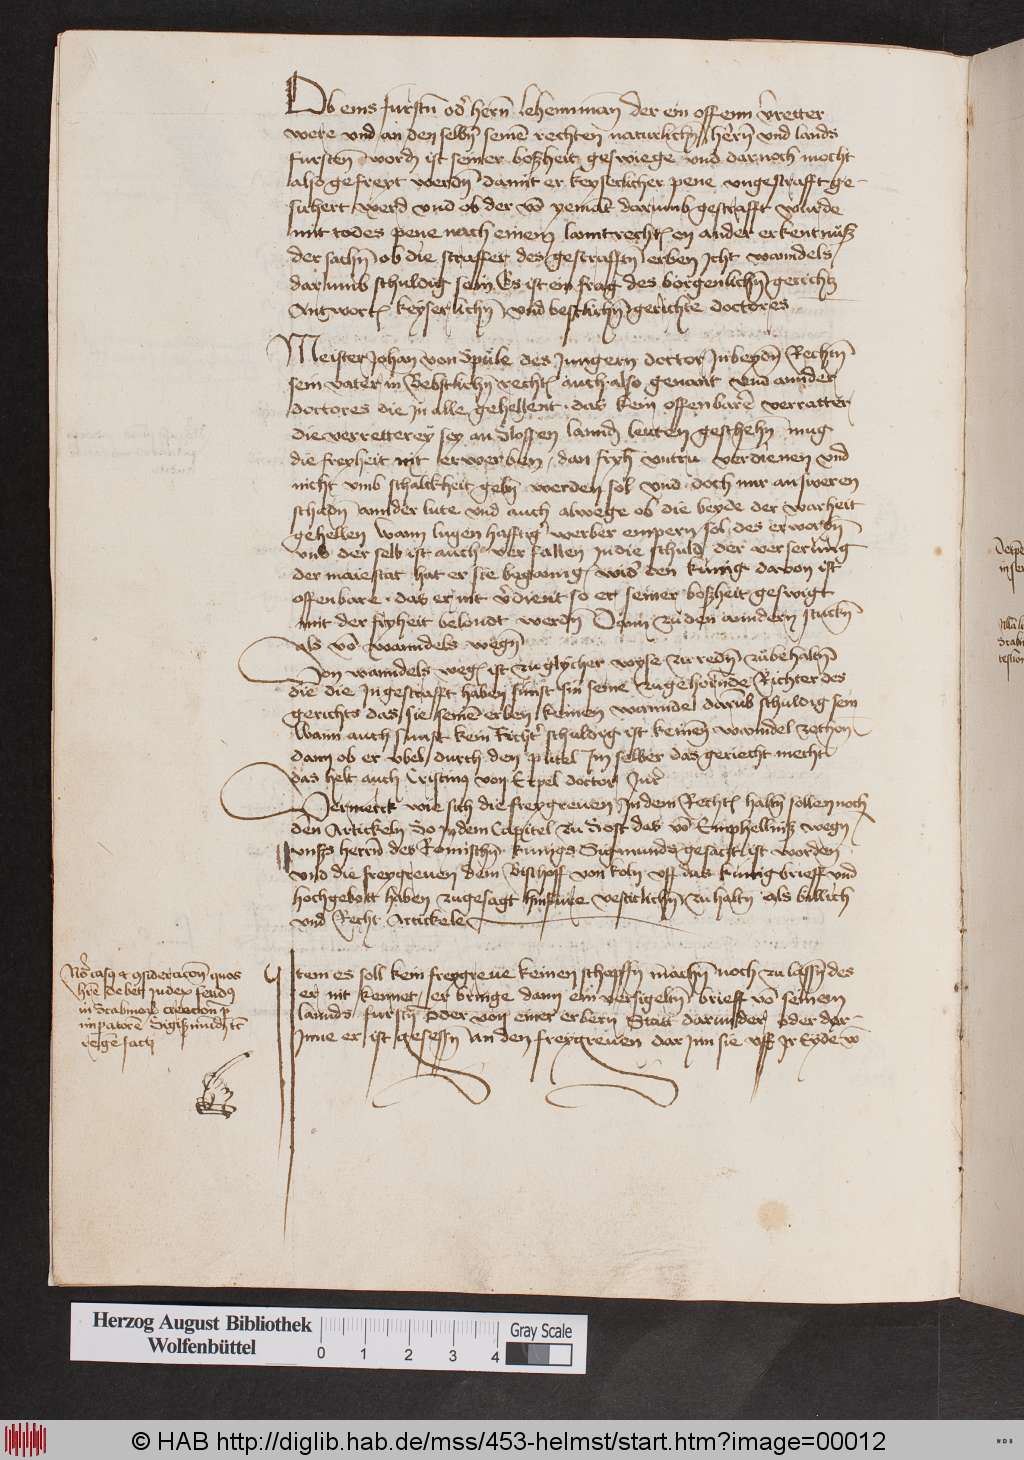 Ob eins furstn od' hern lehenman der ein offenn v'retter
were vnd an den selbn seine rechten naturlichn hern vnd lands
fursten word ist seiner boßheit geswiege vnd darnoch mocht
also gefreyt werdn damit er keyserlicher pene vngestrafft ge-
sichert werd vnd ob der vo yemat darumb gestrafft wurde
mit todes pene nach einem lantrecht en ander erkentnuß
der sachn ob die straffer des gestrafftn erben Icht wanndels
darumb schuldig sein Es ist ein frag des borgenlichn gerichtz
Antwort keyserlichn vnd bestlichn gerichte doctores
Meister Johan von Spüle des Jungern doctor In beydn Rechtn
sein vater in Bebstlichn recht auch also genant vnd annder
doctores die In alle gehellent das kein offenbare verratter
die verretterey sey an Slossen lannd leuten geschehn mug
die freyheit nit erwerben dan fryh vntru verdienen vnd
nicht vmb schalckheit gebn werden sol vnd doch nur an sweren
schadn annder lute vnd auch alwege ob die beyde der warheit
gehellen Wann lugenhafftig werber empern sol des erwordn
vnd der selb ist auch verfallen In die schuld der verserung
der maiestat hat er sie begannig wid' den kunig davon ist
offenbare das er nit v'dient so er seiner boßheit geswigt
mit der fryheit belondt werdn Dann zu den anndern stuckn
als vo wanndels wegn
Von wanndels weg ist zu glycher wyse zu redn zu behaltn
die die In gestrafft haben sunst sin seine zugehornde Richter des
gerichts das sie seine erben keinen wannde darub schuldig sein
Wann auch sunst kein Richt' schuldig ist keinen wanndel zethon
dann ob er vbel durch den puttel Im selber das gericht mecht
das helt auch Cristinus von Erpel doctor Jur
Vermerck wie sich die freygreuen In dem Recht haltn sollen noch
den Artickeln So In dem Capitel zu Sost das vo Emphellniß wegn
vnsrs herrn des Romischn kunigs Sigmunds gesaczt ist worden
vnd die freygreuen dem Bischoff von koln vff das kunig brieff vnd
hochgebott haben zugesagt hinfure vesticlichn zu haltn als billich
vnd Recht Artickele
Item es soll kein freygreue keinen schopffn machn noch zu lassn des
er nit kennet er bringe dann ein versigeltn brieff vo seinem
lannds furstn oder von einer erbern Statt darunder oder dar-
Inne er ist gesessn An den freygreuen dar Inn sie vff Ir Eyde
No casq quos
hre debet Judex
in creacion p
impatore Sigismudu
rege facti
Herzog August Bibliothek
Wolfenbüttel
0 1 2 3 4
Gray Scale
© HAB http://diglib.hab.de/mss/453-helmst/start.htm?image=00012